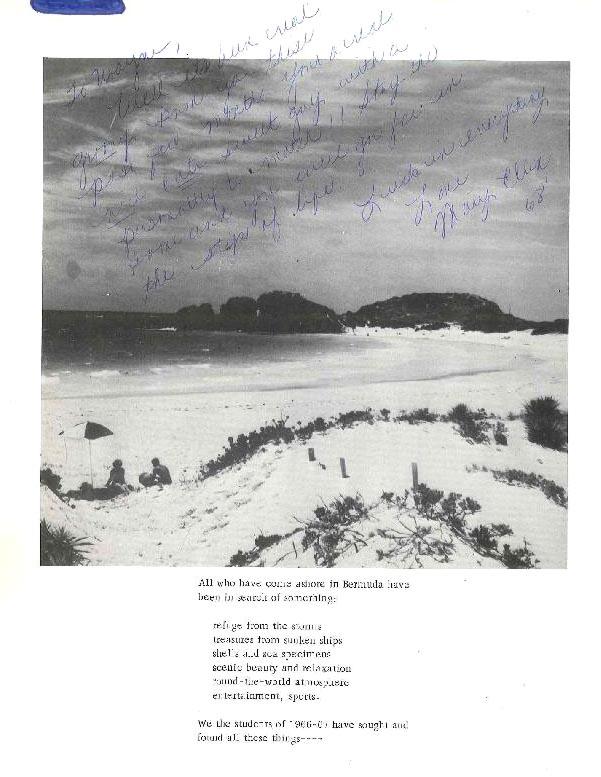 To
Well it's been great
than you these
past few months. You're a real
and sweet guy with a
personality to match!! Stay the
same and you will go far in
the steps of life.
Luck in everything
Love
Mary Ellen
68'
All who have come ashore in Bermuda have
been in search of something:
refuge from the storms
treasures from sunken ships
shells and sea specimens
scenic beauty and relaxation
round-the-world atmosphere
entertainment, sports.
We the students of 1966-67 have sought and
found all these things----